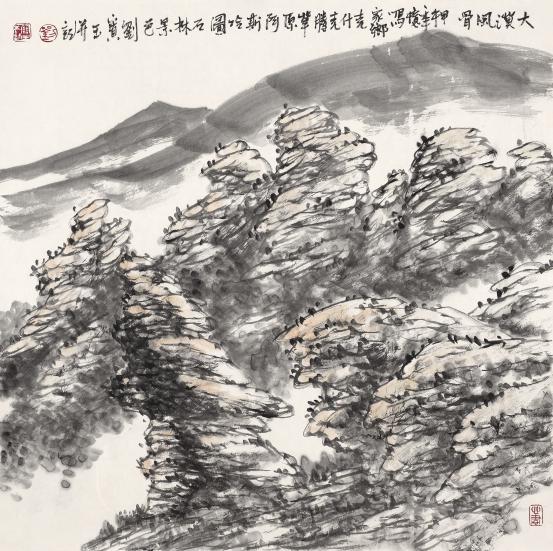 大漠风骨 甲午年憶寫家鄉克什克騰草原阿斯哈圖石林景色劉玉并記